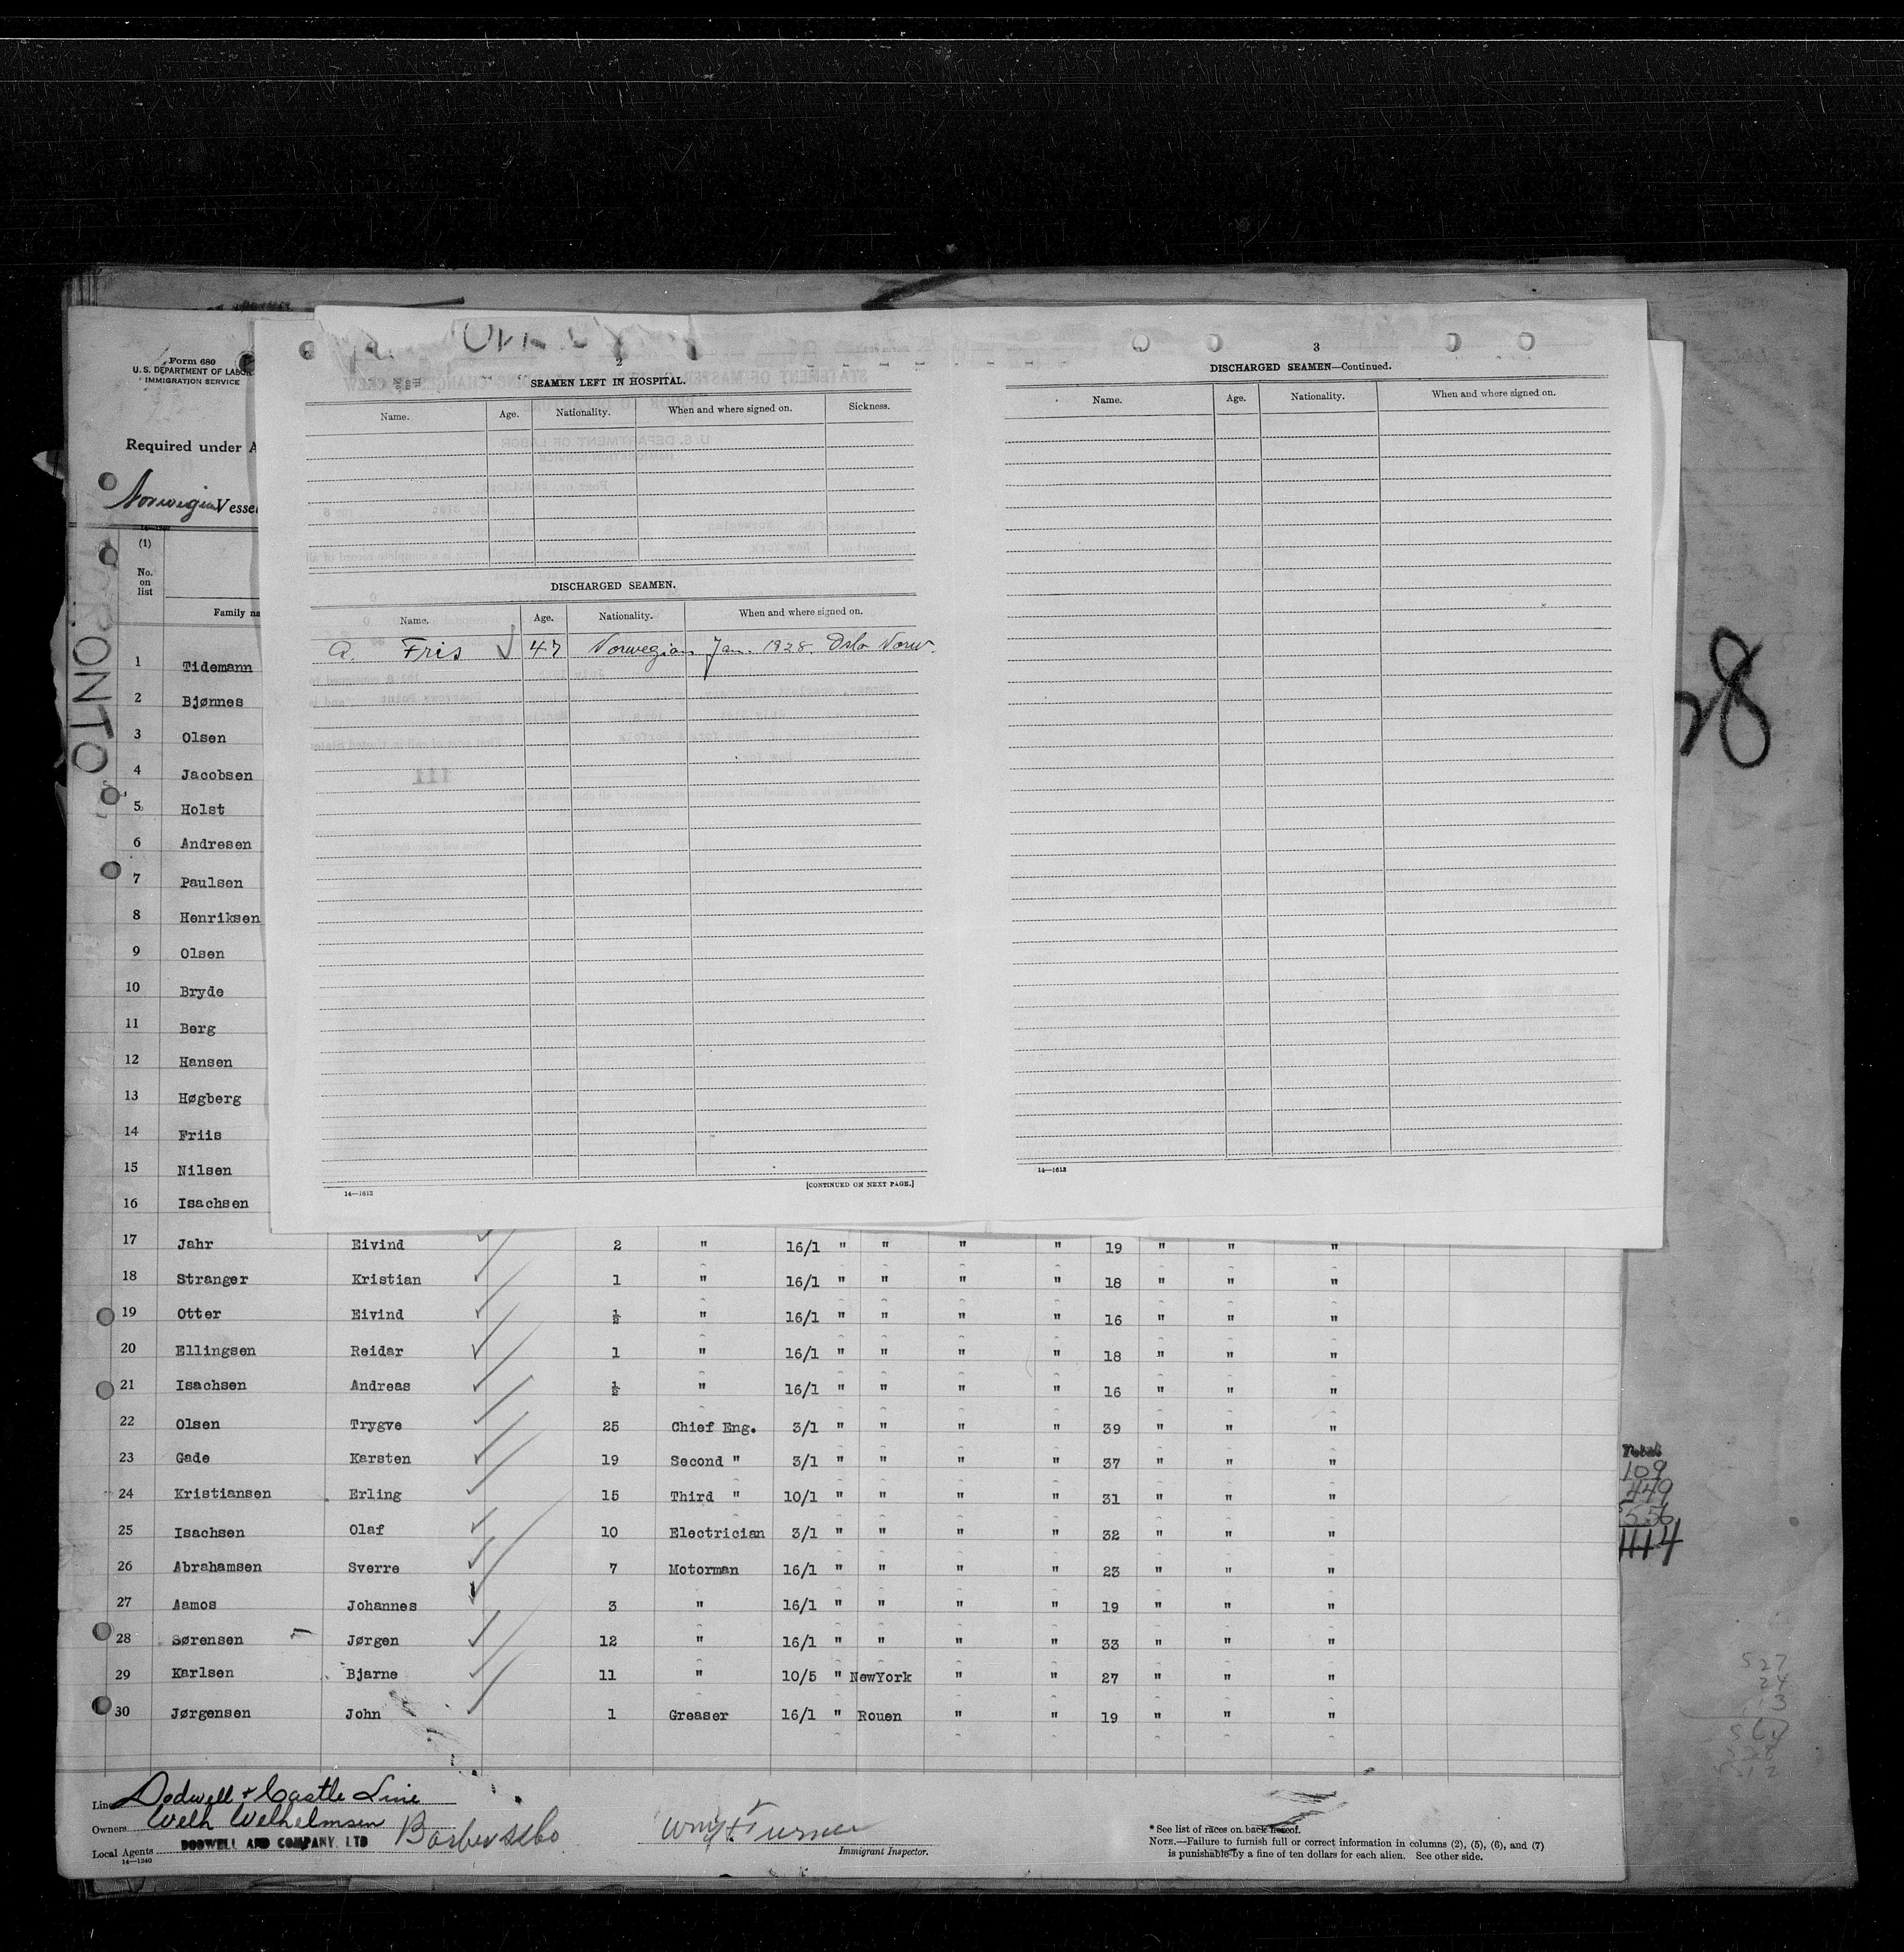 Form 680
U.S. DEPARTMENT OF LABOR
IMMIGRATION SERVICE
Required under A
Norwegian Vessel
14—1240
(1)
No. on list
Family na
ONTO
2
SEAMEN LEFT IN HOSPITAL.
Name. Age. Nationality. When and where signed on. Sickness.
DISCHARGED SEAMEN.
Name. Age. Nationality. When and where signed on.
A. Fris 47 Norwegian Jan. 1928 Oslo Norw.
14—1613
[CONTINUED ON NEXT PAGE.]
3
DISCHARGED SEAMEN—Continued.
Name. Age. Nationality. When and where signed on.
14—1613
28
1 Tidemann
2 Bjønnes
3 Olsen
4 Jacobsen
5 Holst
6 Andresen
7 Paulsen
8 Henriksen
9 Olsen
10 Bryde
11 Berg
12 Hansen
13 Høgberg
14 Friis
15 Nilsen
16 Isachsen
17 Jahr Eivind 2 " 16/1 " " " " 19 " " "
18 Stranger Kristian 1 " 16/1 " " " " 18 " " "
19 Otter Eivind ½ " 16/1 " " " " 16 " " "
20 Ellingsen Reidar 1 " 16/1 " " " " 18 " " "
21 Isachsen Andreas ½ " 16/1 " " " " 16 " " "
22 Olsen Trygve 25 Chief Eng. 3/1 " " " " 39 " " "
23 Gade Karsten 19 Second " 3/1 " " " " 37 " " "
24 Kristiansen Erling 15 Third " 10/1 " " " " 31 " " "
25 Isachsen Olaf 10 Electrician 3/1 " " " " 32 " " "
26 Abrahamsen Sverre 7 Motorman 16/1 " " " " 23 " " "
27 Aamos Johannes 3 " 16/1 " " " " 19 " " "
28 Sørensen Jørgen 12 " 16/1 " " " " 33 " " "
29 Karlsen Bjarne 11 " 10/5 " NewYork " " 27 " " "
30 Jørgensen John 1 Greaser 16/1 " Rouen " " 19 " " "
Total
109
449
556
1114
527
24
13
564
Line Dodwell + Castle Line
Owners Welh Welhelmsen
Local Agents DODWELL AND COMPANY, LTD
14—1240
Wm H Turner
Immigrant Inspector.
* See list of races on back hereof.
NOTE.—Failure to furnish full or correct information in columns (2), (5), (6), and (7)
is punishable by a fine of ten dollars for each alien. See other side.